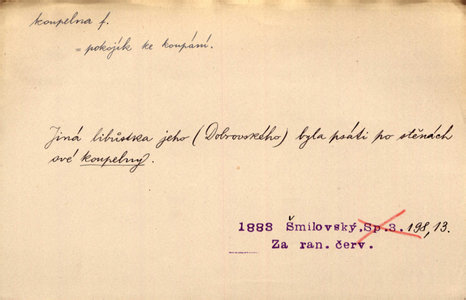 koupelna f.
= pokojík ke koupání.
Jiná libůstka jeho (Dobrovského) byla psáti po stěnách
své koupelny.
1883 Šmilovský, Sp.3. 198, 13.
Za ran. červ.